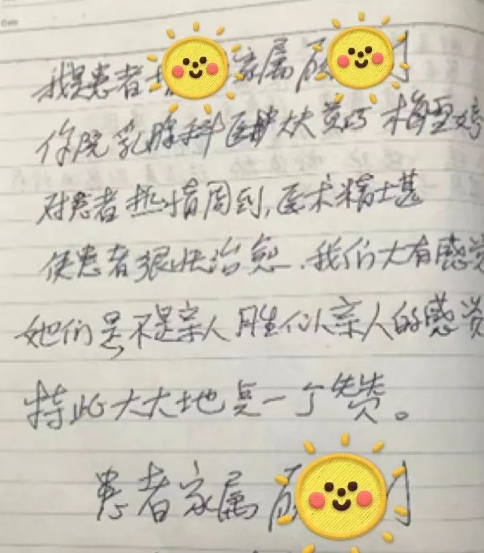 我是患者 家属
你院乳腺科医 梅亚婷
对患者热情周到,医术精士甚
使患者狠快治愈、我们大有感觉
她们是不是亲人胜似亲人的感觉
特此大大地点一个赞。
患者家属